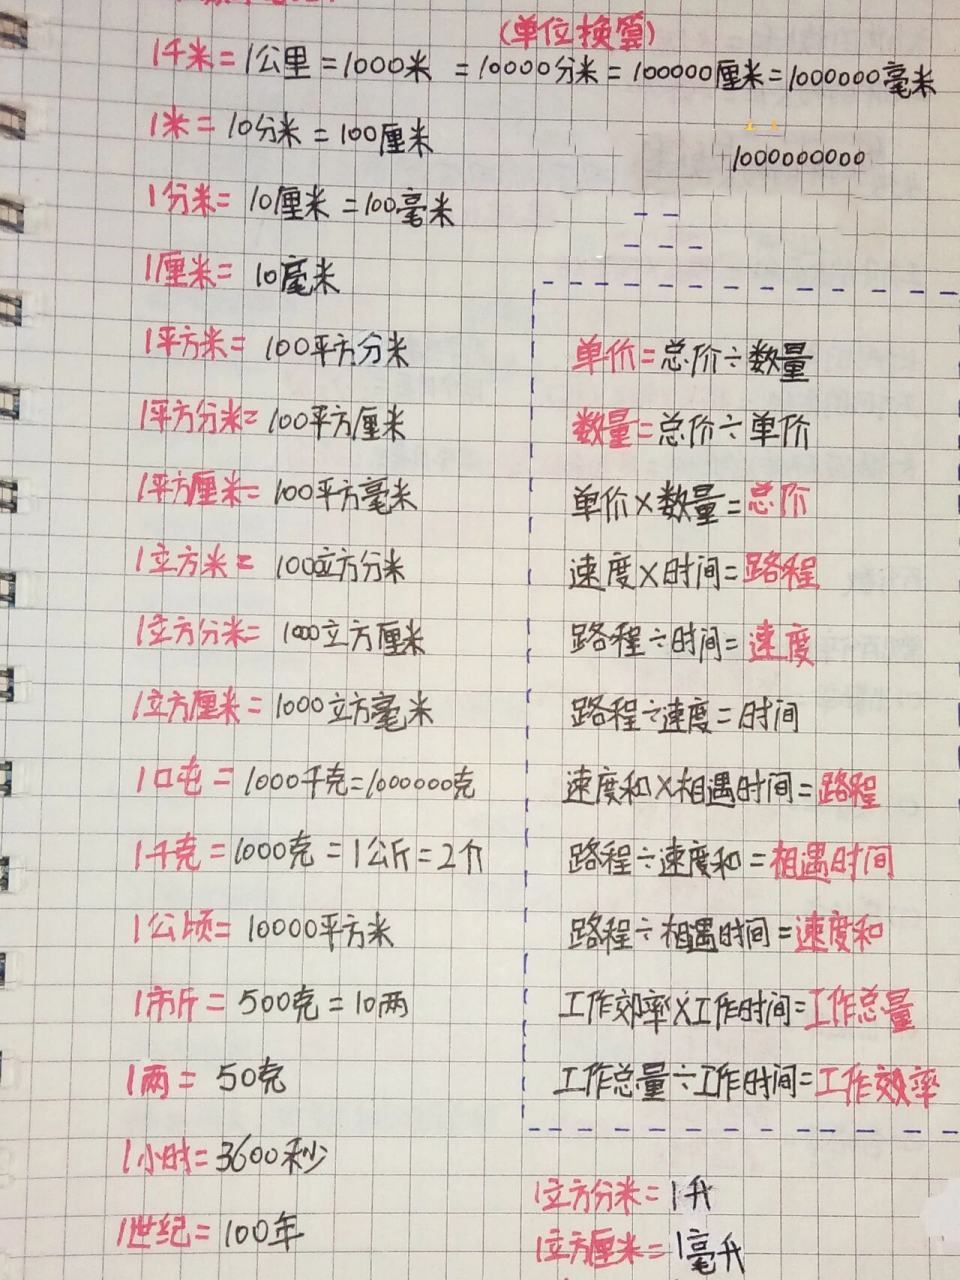 (单位换算)
1千米=1公里=1000米 =10000分米=100000厘米=1000000毫米
1米=10分米=100厘米
1000000000
1分米=10厘米=100毫米
1厘米=10毫米
1平方米=100平方分米
1平方分米=100平方厘米
1平方厘米=100平方毫米
1立方米=100立方分米
1立方分米=1000立方厘米
1立方厘米=1000立方毫米
1吨=1000千克=1000000克
1千克=1000克=1公斤=2斤
1公顷=10000平方米
1市斤=500克=10两
1两=50克
1小时=3600秒
1世纪=100年
单价=总价÷数量
数量=总价÷单价
单价×数量=总价
速度×时间=路程
路程÷时间=速度
路程÷速度=时间
速度和×相遇时间=路程
路程÷速度和=相遇时间
路程÷相遇时间=速度和
工作效率×工作时间=工作总量
工作总量÷工作时间=工作效率
1立方分米=1升
1立方厘米=1毫升